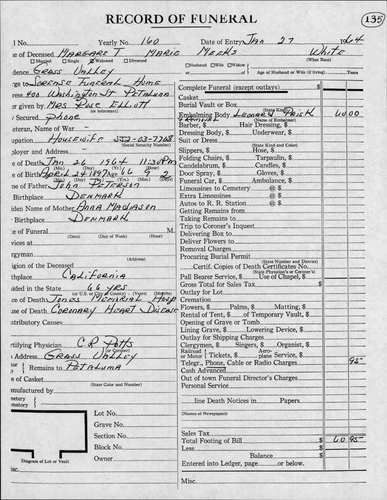 RECORD OF FUNERAL
135
l No. Yearly No. 160 Date of Entry Jan 27 1964
e of Deceased Margaret Marie Meeks White
Married Single Widowed Divorced (What Race)
Husband Wife Widow of Age of Husband or Wife (if living) Years
dence Grass Valley
ge to Sorense Funeral Home
ress 400 Washington St Petaluma
r given by Mrs Rose Elliott
(or informant)
/ Secured phone
eteran, Name of War -
upation Housewife 552-03-7768
(Social Security Number)
loyer and Address
e of Death Jan 26 1964 11:30 PM
(Mo.) (Day) (Year)
e of Birth April 24 1897 Age 66 9 2
(Mo.) (Day) (Year) (Yrs.) (Mos.) (Days)
ne of Father John Peterson
Birthplace Denmark
iden Name of Mother Anna Madason
Birthplace Denmark
e of Funeral M.
(Date) (Day of Week) (Hour)
vices at
rgyman
(Address)
igion of the Deceased
hplace California
ided in the State 66 yrs
e of Death Jones Memorial Hosp
se of Death Coronary Heart Disease
tributory Causes
tifying Physician C R Potts
(or Coroner)
Address Grass Valley
Remains to Petaluma
e of Casket
(State Color and Number)
nufactured by
netery
matory
Lot No.
Grave No.
Section No.
Block No.
Diagram of Lot or Vault Owner
sc.
Complete Funeral (except outlays) $
Burial Vault or Box
(State Kind)
Embalming Body Leonard 60 00
(Name of Embalmer)
Barber, $ Hair Dressing, $
Dressing Body, $ Underwear, $
Suit or Dress
(State Kind and Color)
Slippers, $ Hose, $
Folding Chairs, $ Tarpaulin, $
Candelabrum, $ Candles, $
Door Spray, $ Gloves, $
Funeral Car, $ Ambulance, $
Limousines to Cemetery @ $
Extra Limousines @ $
Autos to R. R. Station @ $
Getting Remains from
Taking Remains to
Trip to Coroner's Inquest
Delivering Box to
Deliver Flowers to
Removal Charges
Procuring Burial Permit
(State Number and District)
Certif. Copies of Death Certificates No.
(State Physician's or Coroner's)
Pall Bearer Service, $ Use of Chapel, $
Gross Total for Sales Tax $
Outlay for Lot
Cremation
Flowers, $ Palms, $ Matting, $
Rental of Tent, $ of Temporary Vault, $
Opening of Grave or Tomb
Lining Grave, $ Lowering Device, $
Outlay for Shipping Charges
Clergymen, $ Singers, $ Organist, $
Railroad or Motor Tickets, $ Aero-plane Service, $
Telegr., Phone, Cable or Radio Charges 95
Cash Advanced
Out of town Funeral Director's Charges
Personal Service
line Death Notices in Papers
(Names of Newspapers)
Sales Tax
Total Footing of Bill $ 60 95
Less $
Balance $
Entered into Ledger, page or below.
Misc.